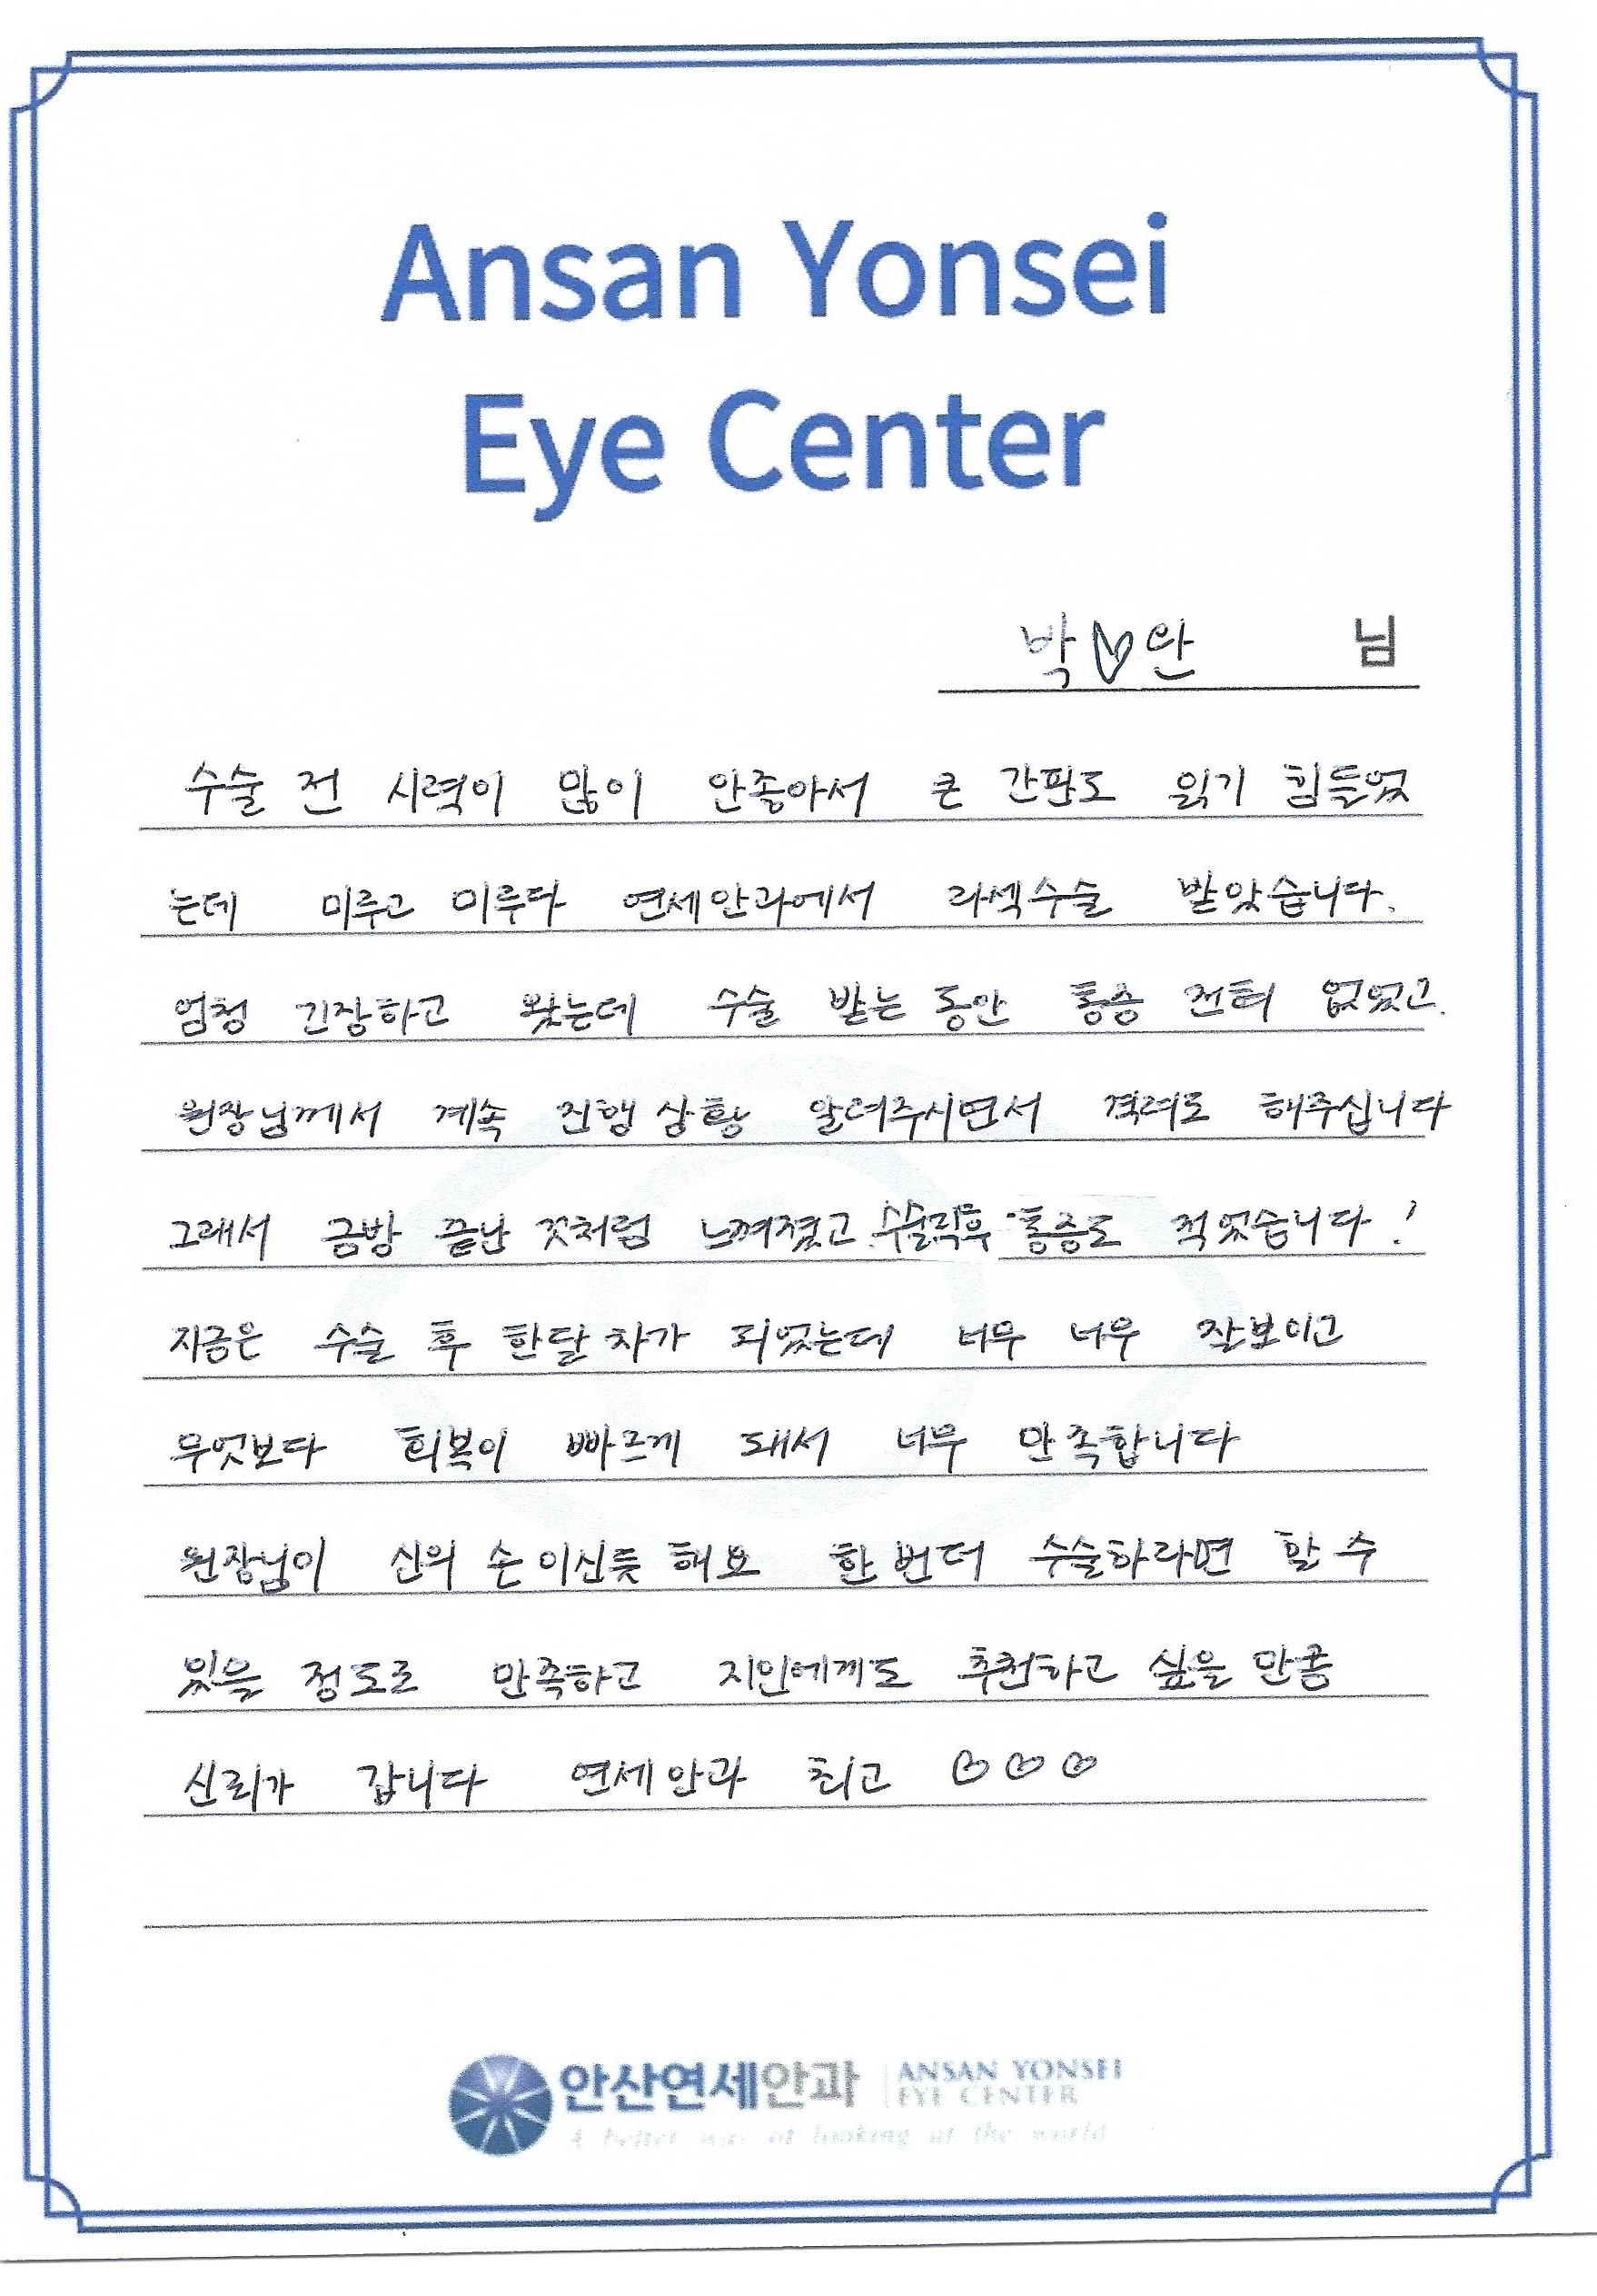 Ansan Yonsei
Eye Center
박♡안 님
수술 전 시력이 많이 안좋아서 큰 간판도 읽기 힘들었
는데 미루고 미루다 연세안과에서 라섹수술 받았습니다.
엄청 긴장하고 왔는데 수술 받는 동안 통증 전혀 없었고.
원장님께서 계속 진행 상황 알려주시면서 격려도 해주십니다
그래서 금방 끝난 것처럼 느껴졌고 수술직후 통증도 적었습니다!
지금은 수술 후 한달 차가 되었는데 너무 너무 잘보이고
무엇보다 회복이 빠르게 돼서 너무 만족합니다
원장님이 신의 손 이신듯 해요 한 번 더 수술하라면 할 수
있을 정도로 만족하고 지인에게도 추천하고 싶을 만큼
신뢰가 갑니다 연세안과 최고 ♡♡♡
안산연세안과 ANSAN YONSEI
EYE CENTER
A better way of looking at the world